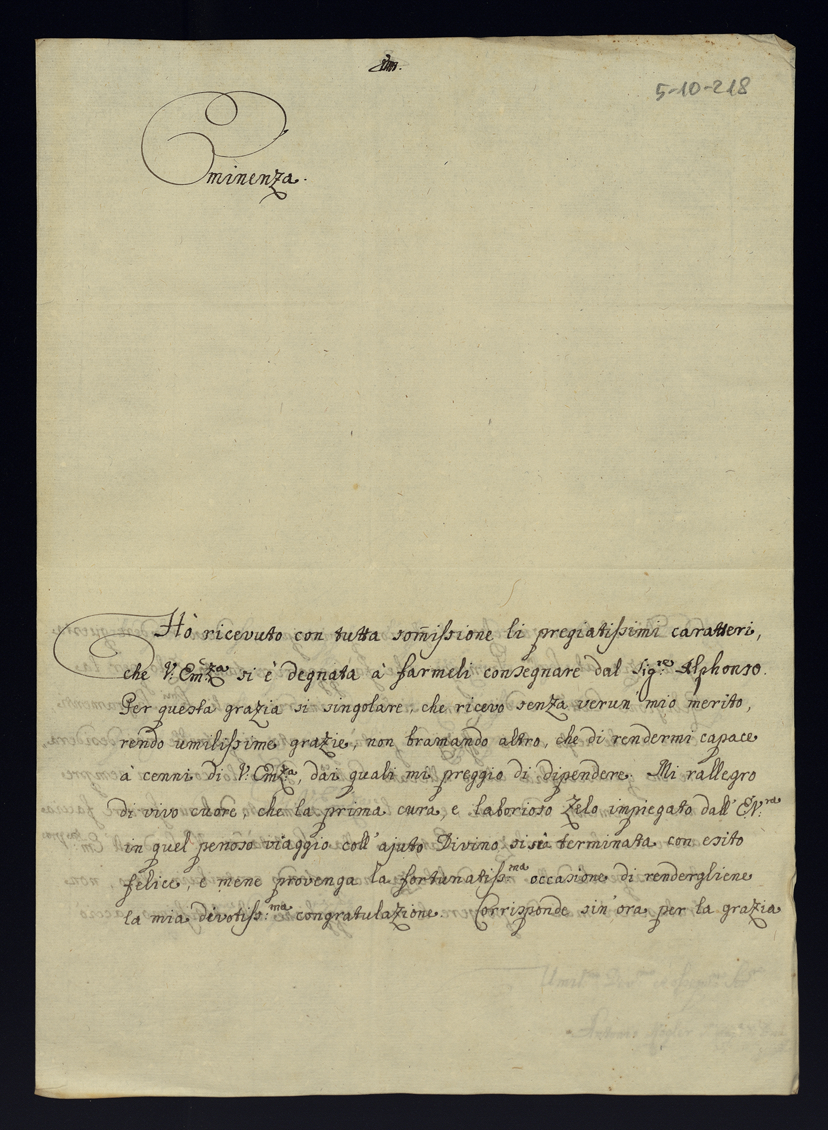 5-10-218
Eminenza.
Hò ricevuto con tutta som̃issione li pregiatissimi caratteri,
che V. Em.za si è degnata à farmeli consegnare dal Sig.re Alphonso.
Per questa grazia si singolare, che ricevo senza verun mio merito,
rendo umilissime grazie, non bramando altro, che di rendermi capace
à cenni di V. Em.za, dai quali mi preggio di dipendere. Mi rallegro
di vivo cuore, che la prima cura, e laborioso zelo impiegato dall' E.V.ra
in quel penoso viaggio coll' ajuto Divino si sia terminata con esito
felice, e mene provenga la fortunatiss:ma occasione di rendergliene
la mia devotiss:ma congratulazione. Corrisponde sin' ora per la grazia